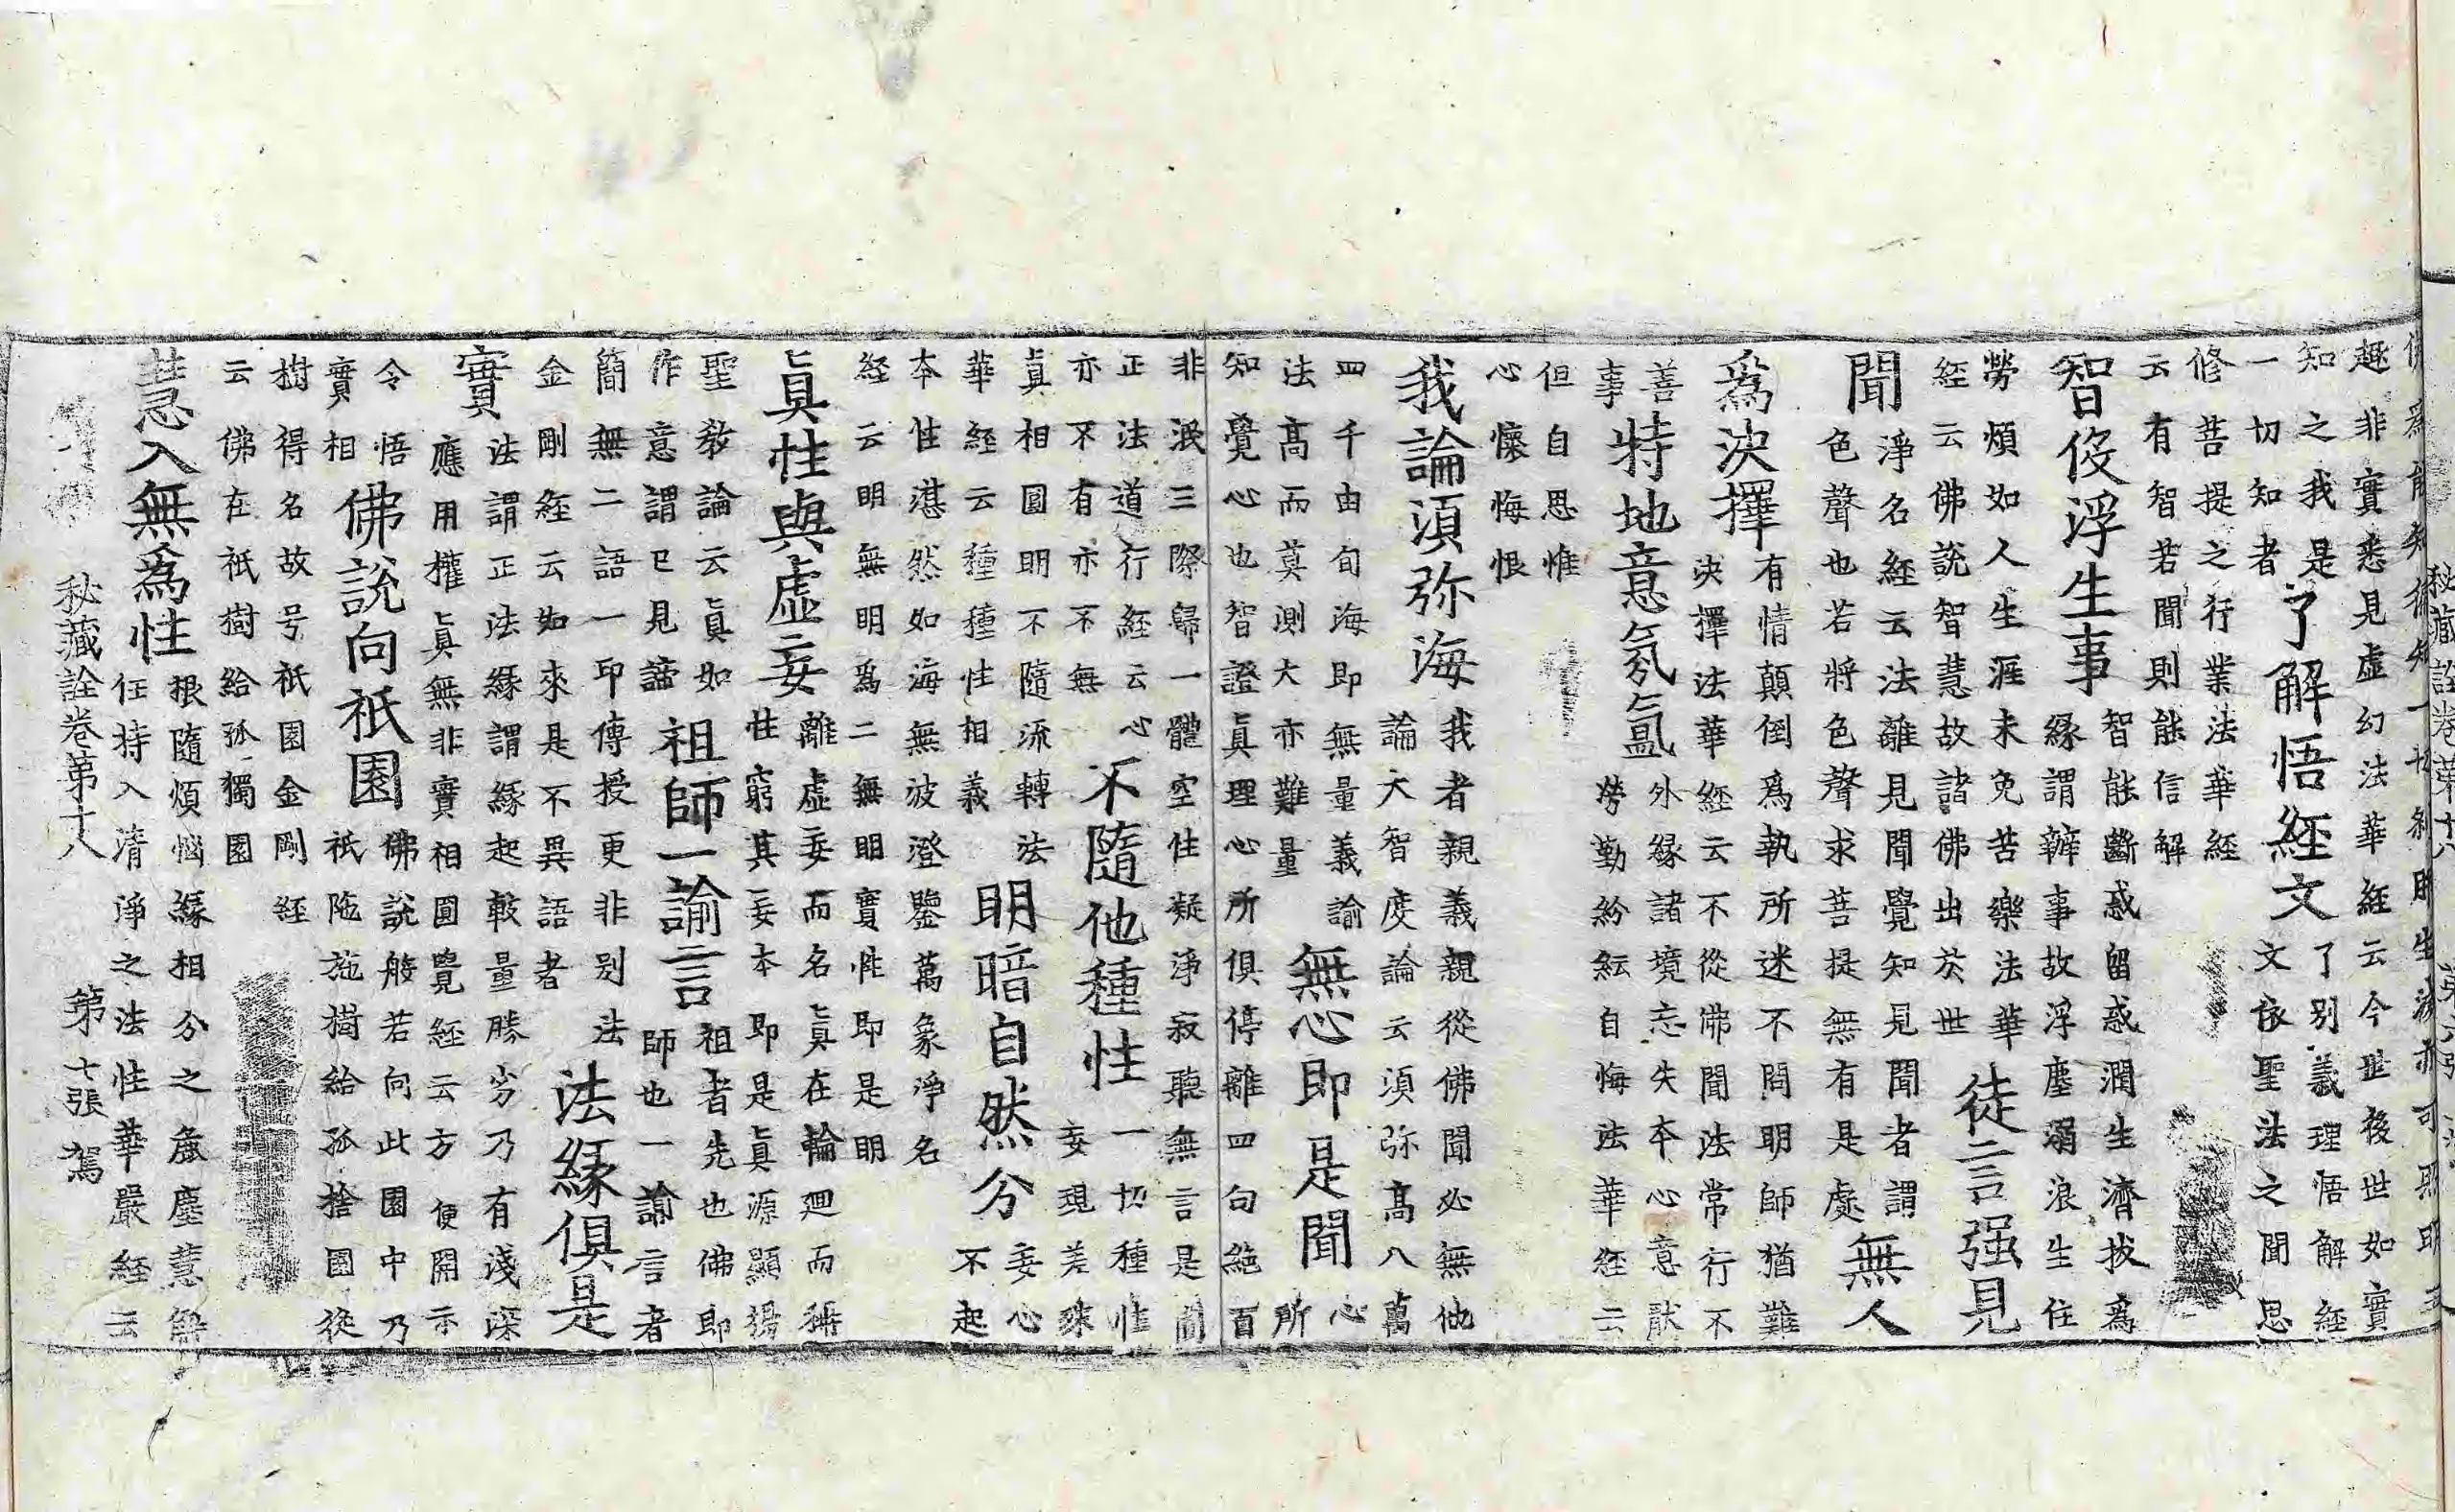 趣非實悉見虛幻法華經云今世後世如實
知之我是
一切知者
了解悟経文
了別義理悟解経
文依聖法之聞思
修菩提之行業法華経
云有智若聞則能信解
智伇浮生事
智能斷惑留惑潤生濟拔爲
緣謂辦事故浮塵溺浪生住
勞煩如人生涯未免苦樂法華
経云佛説智慧故諸佛出於世
徒言强見
聞
淨名経云法離見聞覺知見聞者謂
色聲也若將色聲求菩提無有是處
無人
爲決擇
有情顛倒爲執所迷不問明師猶難
決擇法華経云不從佛聞法常行不
善
事
特地意氛氳
外緣諸境忘失本心意猒
勞勤紛紜自悔法華経云
但自思惟
心懷悔恨
我論須弥海
我者親義親從佛聞必無他
論大智度論云須弥髙八萬
四千由旬海即無量義諭
法髙而莫測大亦難量
無心即是聞
心
所
知覺心也智證眞理心所俱停離四句絶百
非泯三際歸一體空性凝淨寂聽無言是聞
正法道行経云心
亦不有亦不無
不隨他種性
一切種性
妄現差殊
眞相圓明不隨流轉法
華経云種種性相義
明暗自然分
妄心
不起
本性湛然如海無波澄鑒萬象淨名
経云明無明爲二無明實性即是明
眞性與虛妄
離虛妄而名眞在輪廻而稱
性窮其妄本即是眞源顯揚
聖教論云眞如
作意謂已見諦
祖師一諭言
祖者先也佛即
師也一諭言者
簡無二語一印傳授更非別法
金剛経云如來是不異語者
法緣俱是
實
法謂正法緣謂緣起較量勝劣乃有淺深
應用權眞無非實相圓覺経云方便開示
令悟
實相
佛説向祇園
佛説般若向此園中乃
祇陁施樹給孤捨園從
樹得名故号祇園金剛経
云佛在祇樹給孤獨園
慧入無爲性
根隨煩惱緣相分之麁塵慧解
任持入清淨之法性華嚴経云
秘藏詮卷第十八 第七張 駕